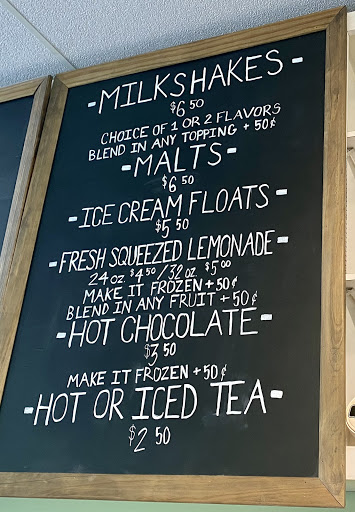 -MILKSHAKES-
$6 50
CHOICE OF 1 OR 2 FLAVORS
BLEND IN ANY TOPPING + 50¢
-MALTS-
$6 50
-ICE CREAM FLOATS-
$5 50
-FRESH SQUEEZED LEMONADE-
24 oz. $4 50 / 32 oz. $5 00
MAKE IT FROZEN + 50¢
BLEND IN ANY FRUIT + 50¢
-HOT CHOCOLATE-
$3 50
MAKE IT FROZEN + 50¢
-HOT OR ICED TEA-
$2 50